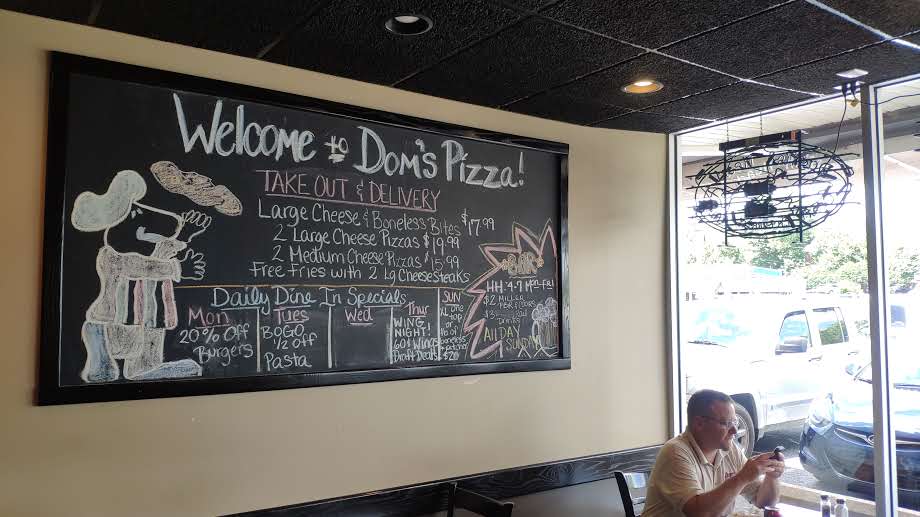 Welcome to Dom's Pizza!
TAKE OUT & DELIVERY
Large Cheese & Boneless Bites $17.99
2 Large Cheese Pizzas $19.99
2 Medium Cheese Pizzas $15.99
Free Fries with 2 Lg Cheesesteaks
Daily Dine In Specials
Mon
20% Off
Burgers
Tues
BOGO
1/2 Off
Pasta
Wed
Thur
WING
NIGHT!
60¢ Wings
Draft Deals
SUN
XL one
top
or
10 pc
boneless
$20
BAR
HH 4-7
$2 MILLER
ALL DAY
SUNDAY